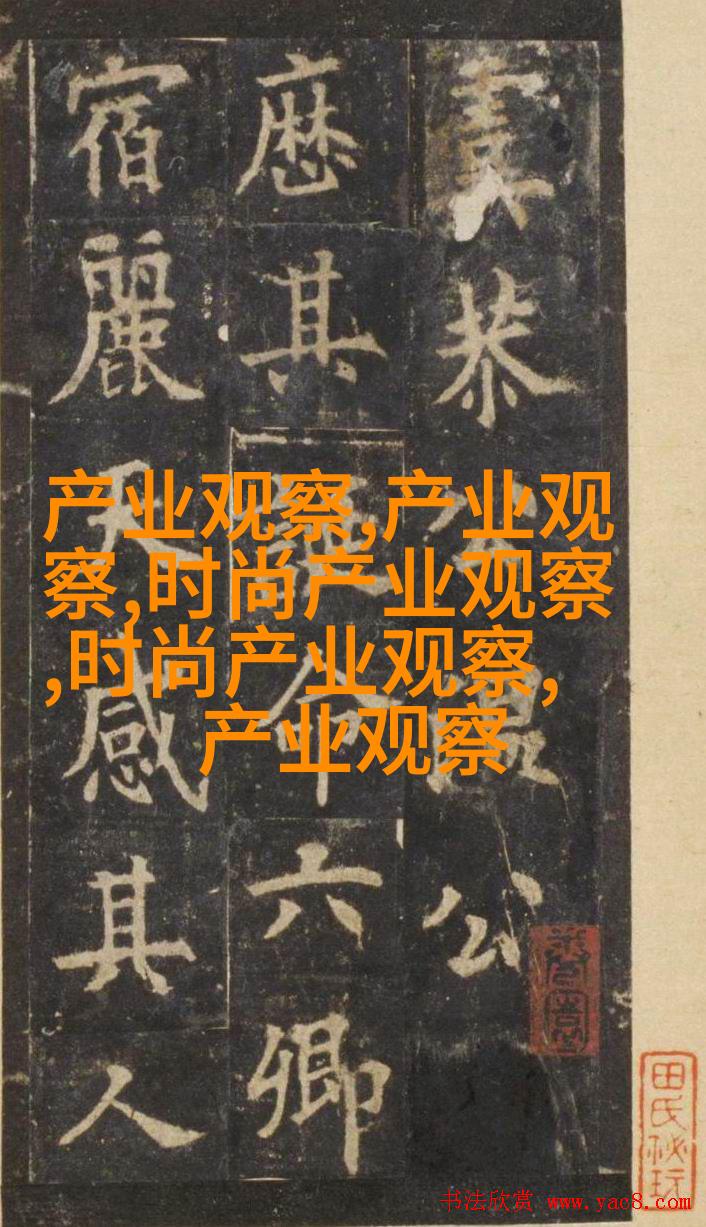 产业观察,产业观
察,时尚产业观察
,时尚产业观察,
产业观察
恭公
厯其命六卿
宿麗天感其人
田氏秘玩
书法欣赏 www.yac8.com